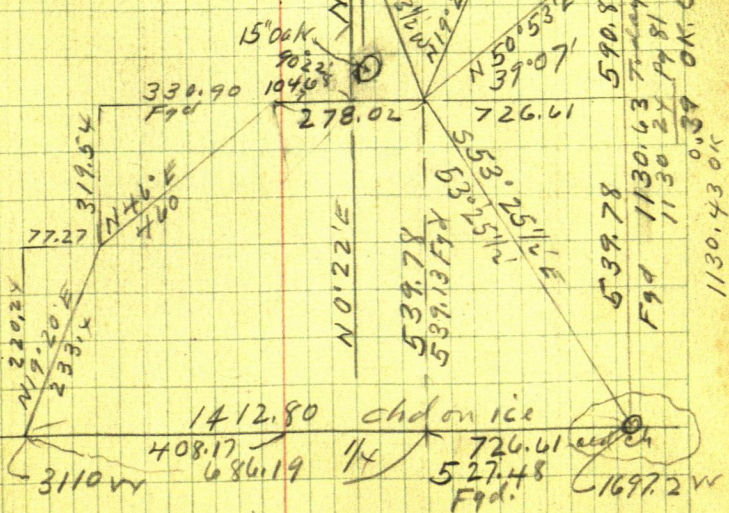 15" oak
90°22'
104.68
330.90
Fgd
278.02
726.61
N 50°53'E
39°07'
N 19°2
319.54
N 46° E
460
77.27
220.24
N 19°20' E
233.4
N 0°22' E
539.78
539.13 Fgd
S 53°25 1/2' E
53°25 1/2'
590.8
539.78
Fgd 1130.63 Today
1130 24 Pg 81
0.39 OK.
1130.43 OK
1412.80 chd on ice
408.17
686.19
1/4
726.61
527.48
Fgd.
3110 vr
1697.2 vr